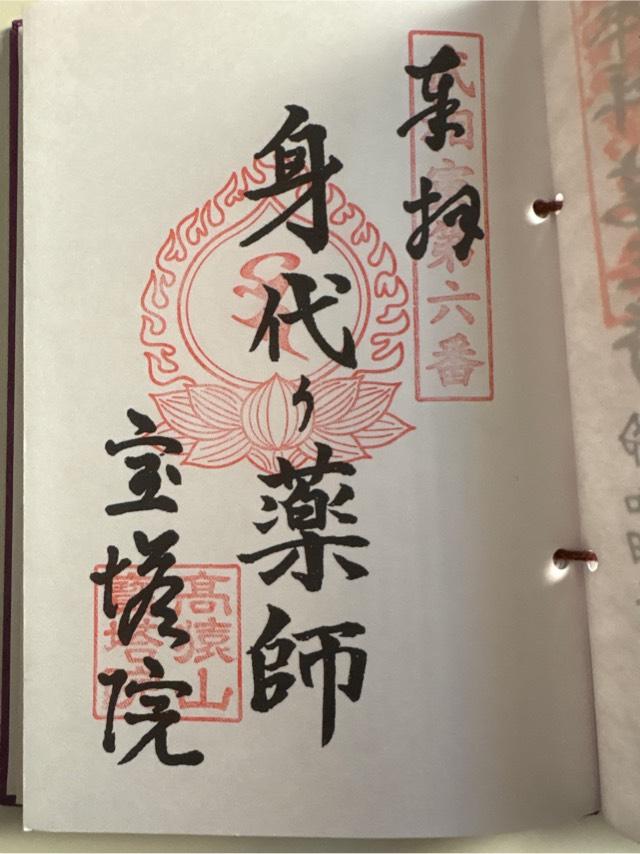 奉拝
第六番
身代り薬師
宝塔院
高猿山
寶塔院